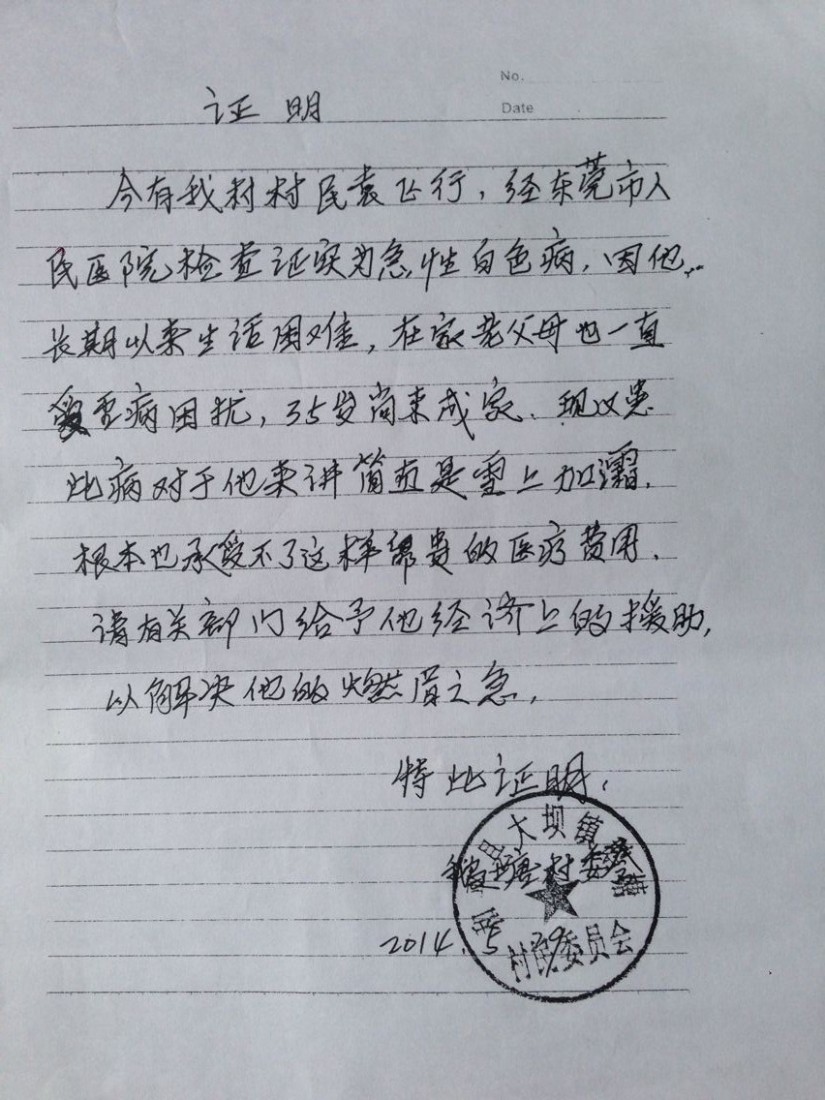 No.
Date
证明
今有我村村民袁飞行，经东莞市人
民医院检查证实为急性白色病，因他
长期以来生活困难，在家老父母也一直
受重病困扰，35岁尚未成家．现又患
此病对于他来讲简直是雪上加霜．
根本也承受不了这样昂贵的医疗费用．
请有关部门给予他经济上的援助，
以解决他的燃眉之急，
特此证明．
县大坝镇
塘村委
2014.5
村民委员会